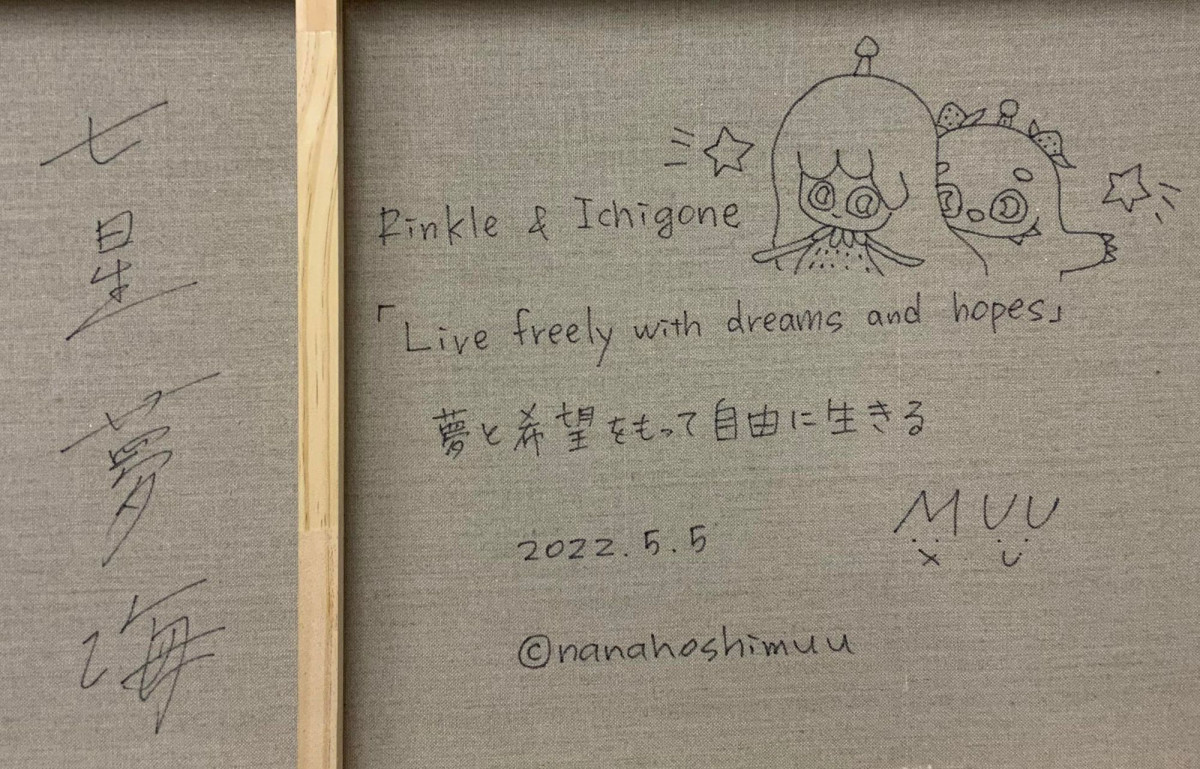 七星夢海
Rinkle & Ichigone
「Live freely with dreams and hopes」
夢と希望をもって自由に生きる
2022.5.5
MUU
©nanahoshimuu